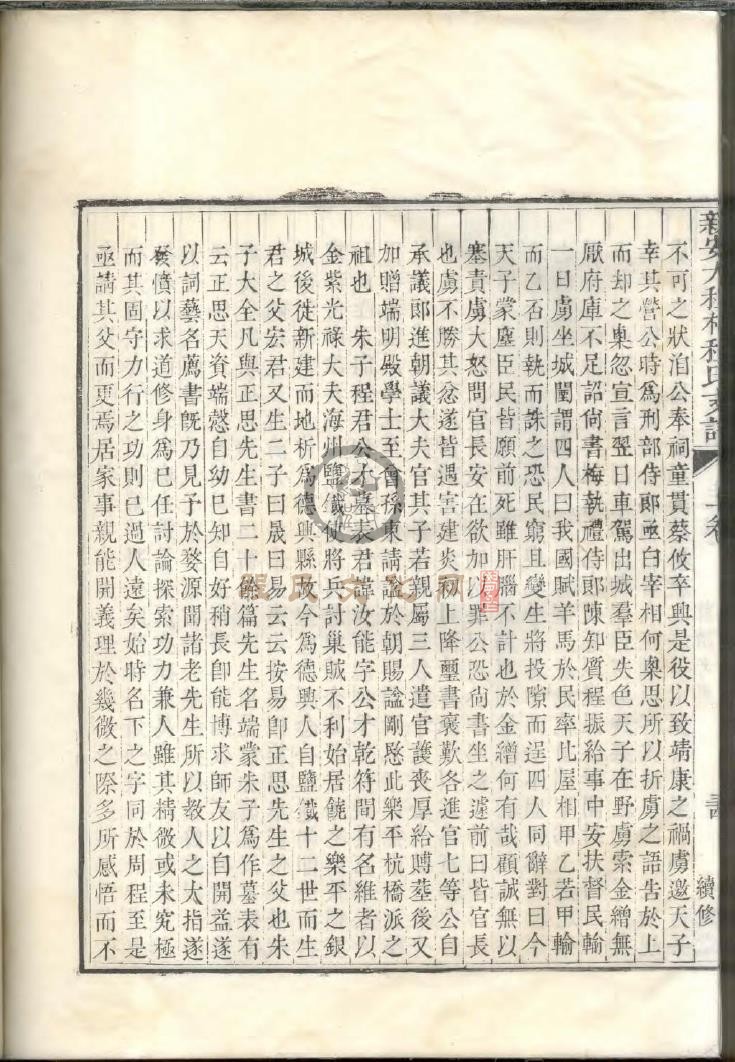 新安大程村程氏支譜
續修
不可之狀洎公奉祠童貫蔡攸卒興是役以致靖康之禍虜邀天子
幸其營公時爲刑部侍郎亟白宰相何㮚思所以折虜之語告於上
而却之㮚忽宣言翌日車駕出城羣臣失色天子在野虜索金繒無
厭府庫不足詔尚書梅執禮侍郎陳知質程振給事中安扶督民輸
一日虜坐城闉謂四人曰我國賦羊馬於民率比屋相甲乙若甲輸
而乙否則執而誅之恐民窮且變生將投隙而逞四人同辭對曰今
天子蒙塵臣民皆願前死雖肝腦不計也於金繒何有哉顧誠無以
塞責虜大怒問官長安在欲加以罪公恐尚書坐之遽前曰皆官長
也虜不勝其忿遂皆遇害建炎初上降璽書褒歎各進官七等公自
承議郎進朝議大夫官其子若親屬三人遣官護喪厚給賻塟後又
加贈端明殿學士至曾孫東請謚於朝賜謚剛愍此樂平杭橋派之
祖也　朱子程君公才墓表君諱汝能字公才乾符間有名維者以
金紫光祿大夫海州鹽鐵使將兵討巢賊不利始居饒之樂平之銀
城後徙新建而地析爲德興縣故今爲德興人自鹽鐵十二世而生
君之父宏君又生二子曰晟曰易云云按易卽正思先生之父也朱
子大全凡與正思先生書二十餘篇先生名端蒙朱子爲作墓表有
云正思天資端愨自幼已知自好稍長卽能博求師友以自開益遂
以詞藝名薦書旣乃見予於婺源聞諸老先生所以教人之大指遂
發憤以求道修身爲已任討論探索功力兼人雖其精微或未究極
而其固守力行之功則已過人遠矣始時名下之字同於周程至是
亟請其父而更焉居家事親能開義理於幾微之際多所感悟而不